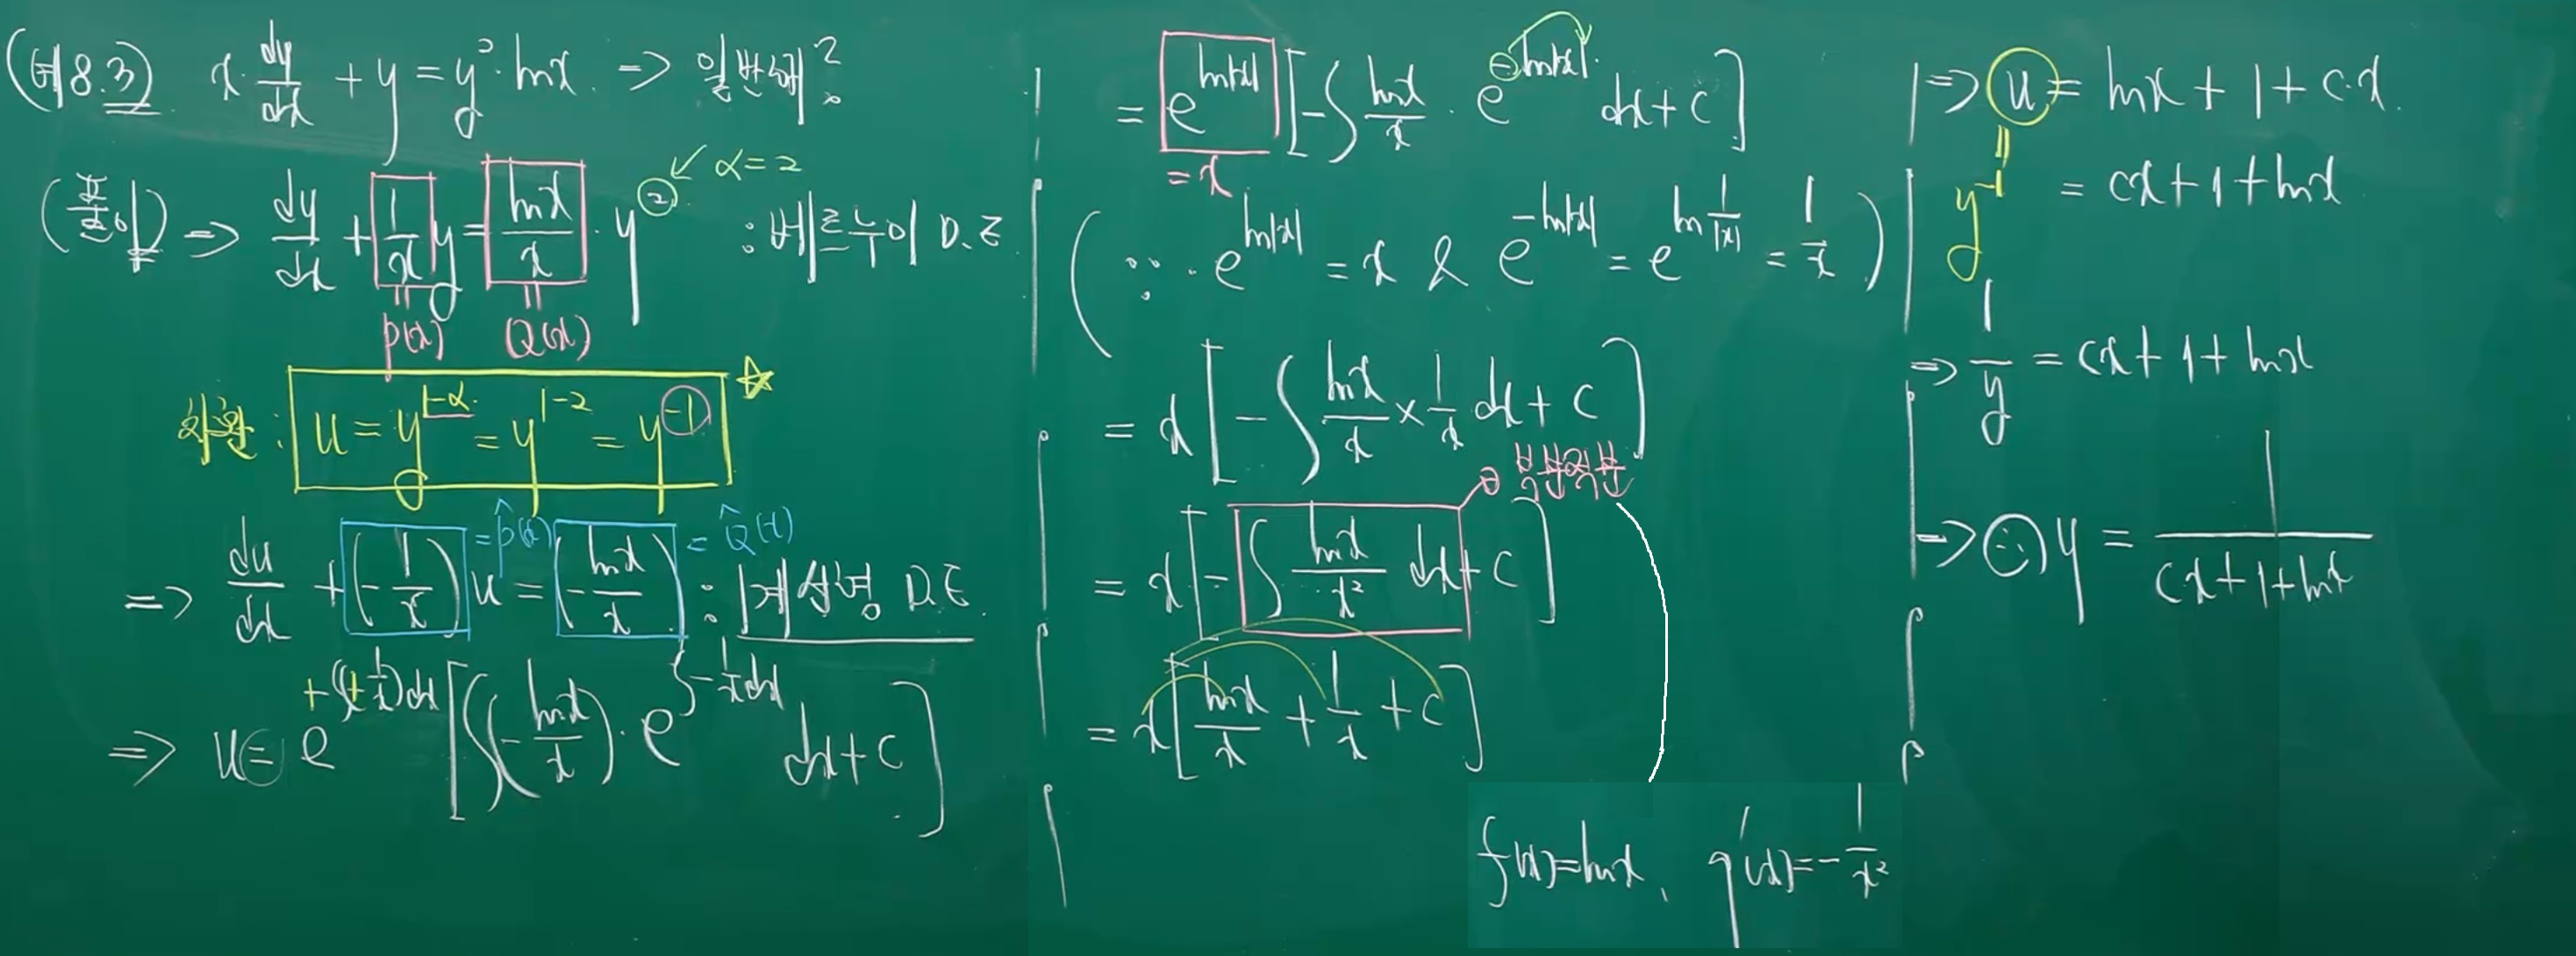 (예8.3) x·dy/dx + y = y²·lnx. → 일반해?
(풀이) ⇒ dy/dx + 1/x y = lnx/x · y² ↙ α=2 : 베르누이 D.E
= P(x) = Q(x)
치환 : u = y^(1-α) = y^(1-2) = y^(-1) ☆
⇒ du/dx + (-1/x) u = (-lnx/x) : 1계 선형 D.E.
= P̂(x) = Q̂(x)
⇒ u = e^(+∫(+1/x)dx) [∫(-lnx/x)·e^(∫-1/x dx) dx + c]
= e^(ln|x|) [-∫ lnx/x · e^(-ln|x|) dx + c]
= x
(∵ e^(ln|x|) = x & e^(-ln|x|) = e^(ln 1/|x|) = 1/x)
= x [-∫ lnx/x × 1/x dx + c]
부분적분
= x [-∫ lnx/x² dx + c]
= x [lnx/x + 1/x + c]
f(x)=lnx, g'(x)=-1/x²
⇒ u = lnx + 1 + c·x.
y^(-1) = cx + 1 + lnx
⇒ 1/y = cx + 1 + lnx
⇒ ∴ y = 1/(cx + 1 + lnx)